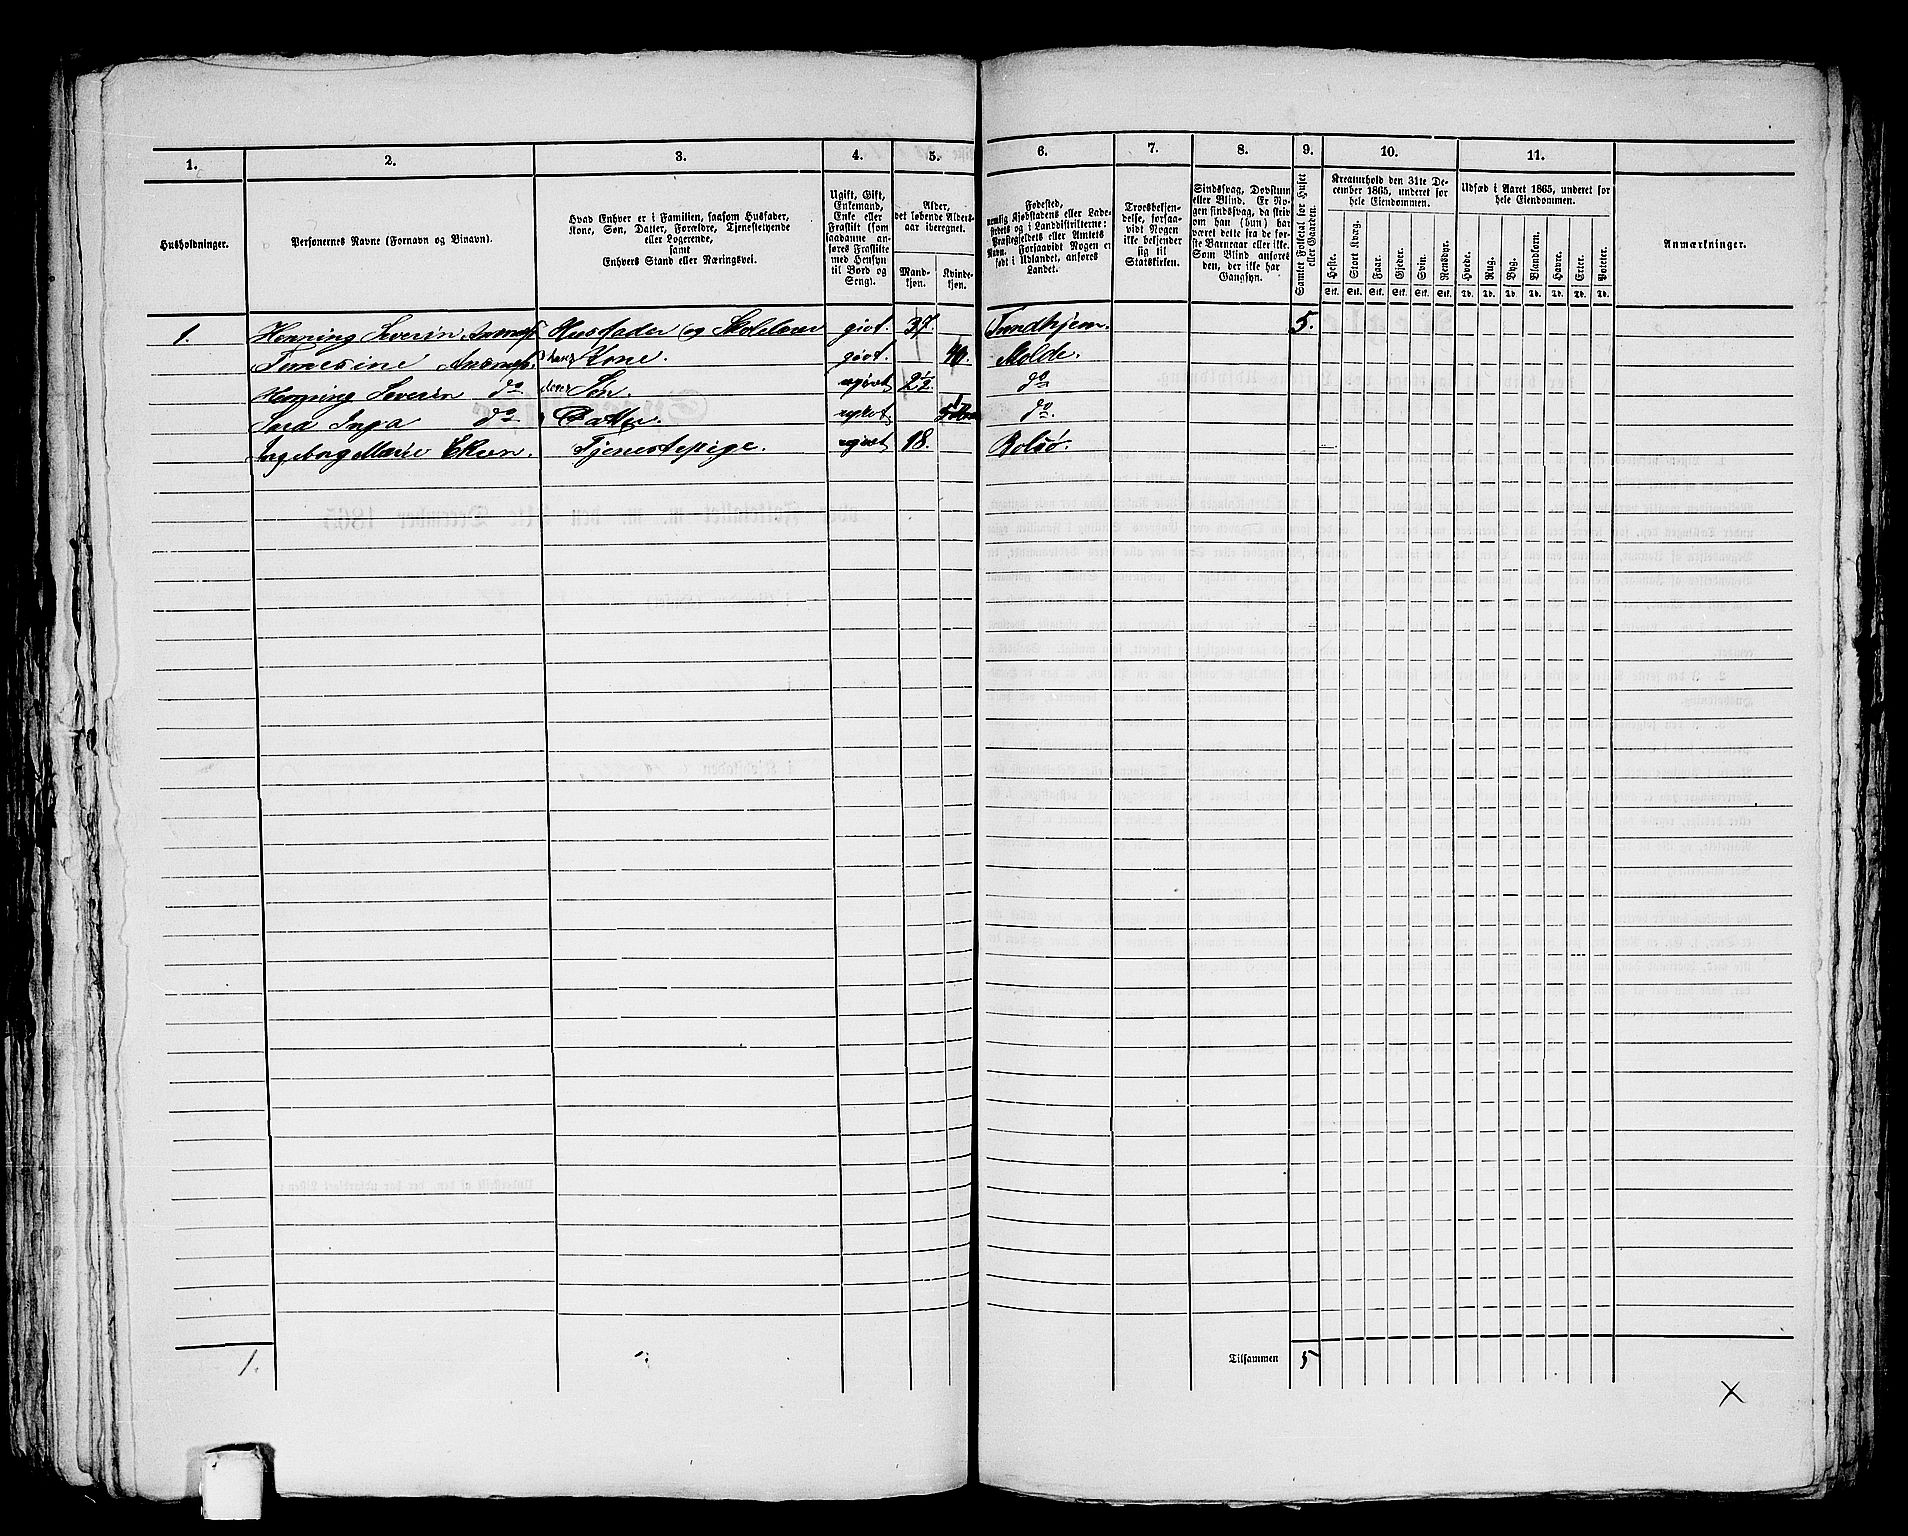 1. 2. 3. 4. 5. 6. 7. 8. 9. 10. 11.
Husholdninger.
Personernes Navne (Fornavn og Binavn).
Hvad Enhver er i Familien, saasom Husfader,
Kone, Søn, Datter, Forældre, Tjenestetyende
eller Logerende,
samt
Enhvers Stand eller Næringsvei.
Ugift, Gift,
Enkemand,
Enke eller
Fraskilt (som
saadanne an-
føres Fraskilte
med Hensyn
til Bord og
Seng).
Alder,
det løbende Alders-
aar iberegnet.
Mand-
kjøn.
Kvinde-
kjøn.
Fødested,
nemlig Kjøbstadens eller Lade-
stedets og i Landdistrikterne:
Præstegjeldets eller Amtets
Navn. Forsaavidt Nogen er
født i Udlandet, anføres
Landet.
Troesbekjen-
delse, forsaa-
vidt Nogen
ikke bekjender
sig til
Statskirken.
Sindssvag, Døvstum
eller Blind. Er No-
gen sindssvag, da skriv
om han (hun) har
været dette fra de før-
ste Barneaar eller ikke.
Som Blind anføres
den, der ikke har
Gangsyn.
Samlet Folketal for Huset
eller Gaarden.
Kreaturhold den 31te De-
cember 1865, underet for
hele Eiendommen.
Heste. Stort Kvæg. Faar. Gjeder. Svin. Rensdyr.
Stk. Stk. Stk. Stk. Stk. Stk.
Udsæd i Aaret 1865, underet for
hele Eiendommen.
Hvede. Rug. Byg. Blandkorn. Havre. Erter. Poteter.
Td. Td. Td. Td. Td. Td. Td.
Anmærkninger.
1. Henning Severin Husfader og Skolelærer givt. 37. Trondhjem. 5.
hans Kone. givt. 40. Molde.
Henning Severin do deres Søn. ugivt 2½. do
Inga do Datter. ugivt do
Ingeborg Marie Tjenestepige. ugivt 18. Bolsø.
1. Tilsammen 5
X